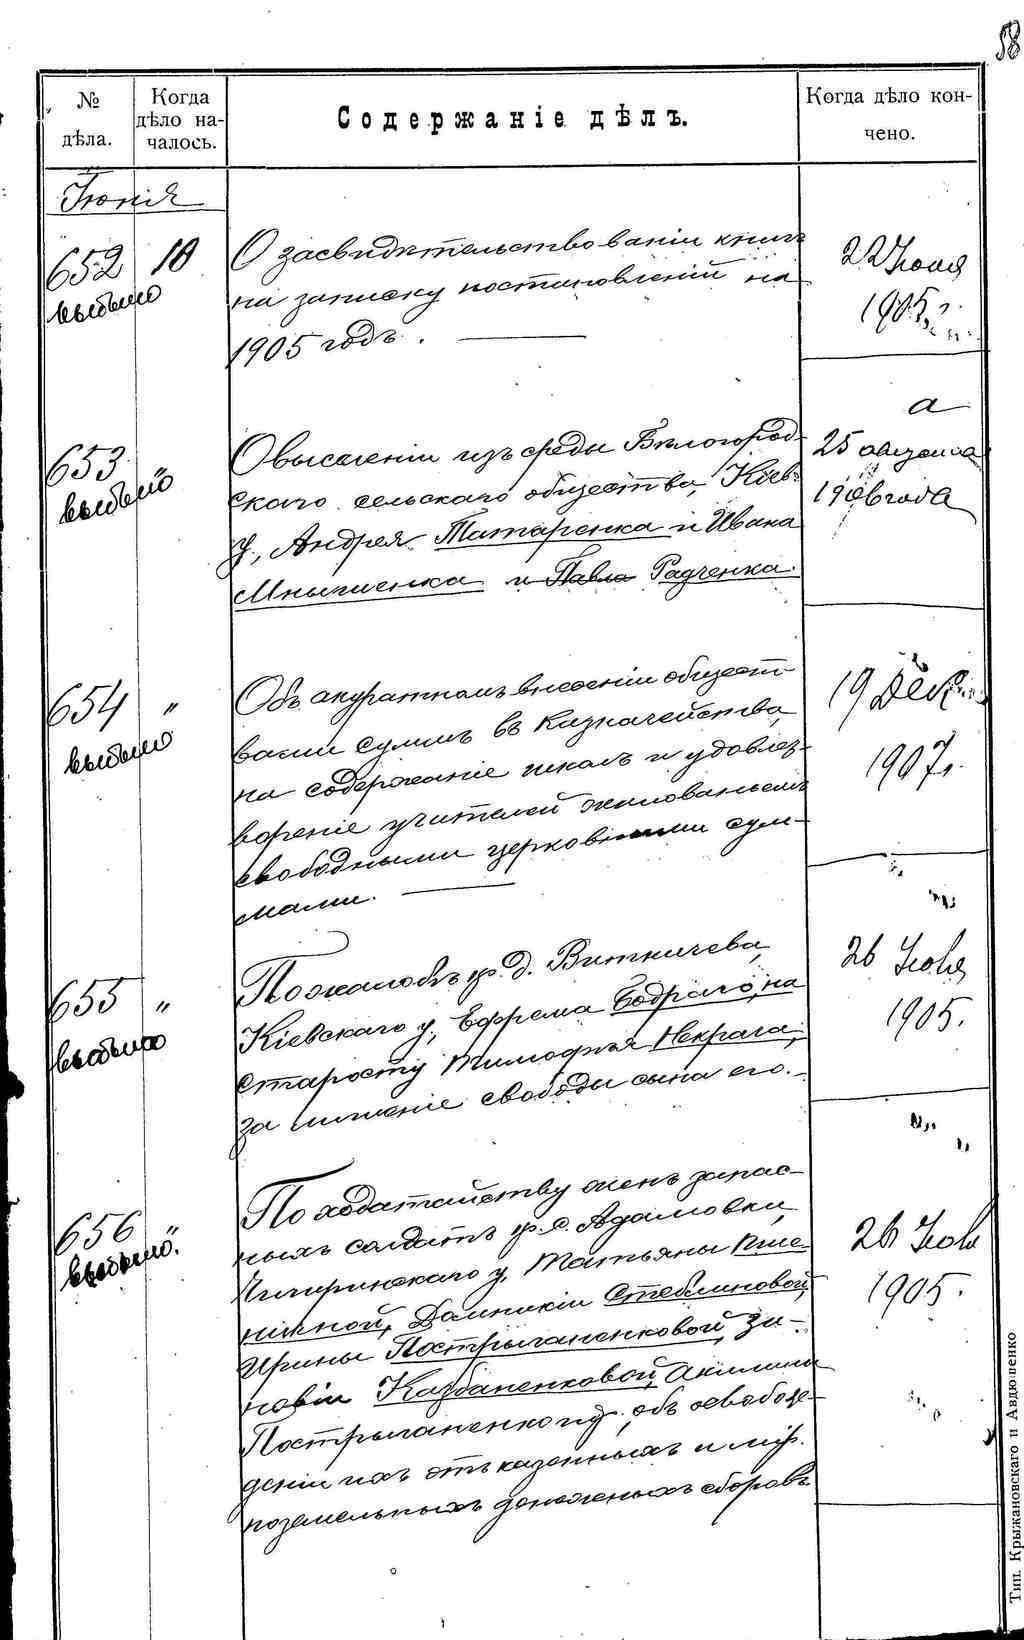 58
№ дѣла.
Когда дѣло на-
чалось.
Содержаніе дѣлъ.
Когда дѣло кон-
чено.
Іюнія
652
выбыло
10
О засвидѣтельствованіи книгъ
на записку постановленій на
1905 годъ.
22 Іюня
1905 г.
653
выбыло
"
О выселеніи изъ среды Бѣлогород-
скаго сельскаго общества, Кіев.
у., Андрея Татаренка и Ивана
и Павла Радченка.
25 августа
1906 года
654
выбыло
"
Объ акуратномъ внесеніи общест-
вами суммъ въ Казначейства,
на содержаніе школъ и удовлет-
вореніе учителей жалованьемъ
свободными церковными сум-
мами.
19 Дек.
1907 г.
655
выбыло
"
По жалобѣ кр. д. Витачева,
Кіевскаго у., Ефрема Бодраго, на
старосту Тимофѣя Некрага,
за лишеніе свободы сына его.
26 Іюня
1905.
656
выбыло.
"
По ходатайству женъ запас-
ныхъ солдатъ кр. с. Адамовки,
Чигиринскаго у. Татьяны Пше-
ничной, Домникіи Стеблиновой,
Ирины Пострыганенковой, Зи-
новіи Казбаненковой, Акилины
Пострыганенковой, объ освобож-
деніи ихъ отъ казенныхъ и мір.
поземельныхъ денежныхъ сборовъ
26 Іюн
1905.
Тип. Крыжановскаго и Авдюшенко